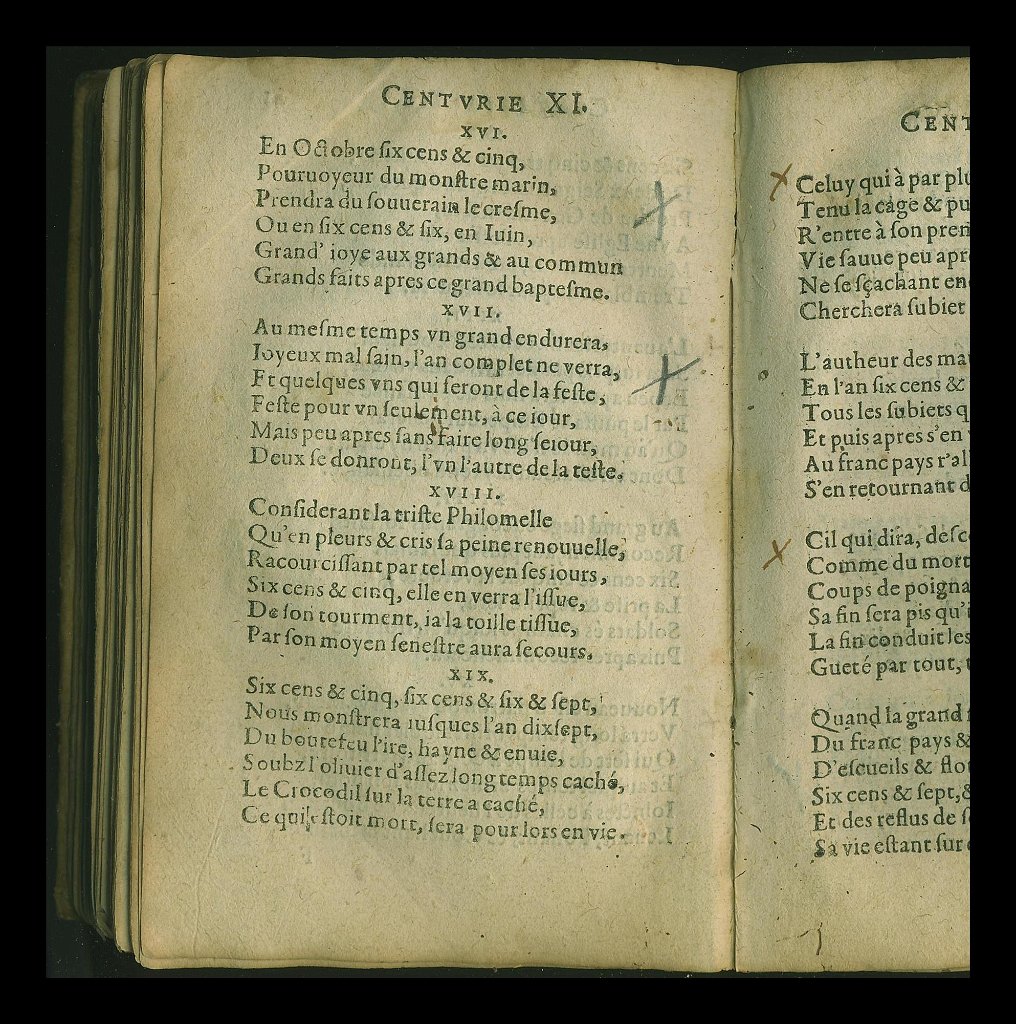 CENTVRIE XI.
XVI.
En Octobre ſix cens & cinq,
Pouruoyeur du monſtre marin,
Prendra du ſouuerain le creſme,
Ou en ſix cens & ſix, en Iuin,
Grand' joye aux grands & au commun
Grands faits apres ce grand bapteſme.
XVII.
Au meſme temps vn grand endurera,
Ioyeux mal ſain, l'an complet ne verra,
Et quelques vns qui ſeront de la feſte,
Feſte pour vn ſeulement, à ce iour,
Mais peu apres ſans faire long ſeiour,
Deux ſe donront, l'vn l'autre de la teſte.
XVIII.
Conſiderant la triſte Philomelle
Qu'en pleurs & cris ſa peine renouuelle,
Racourciſſant par tel moyen ſes iours,
Six cens & cinq, elle en verra l'iſſue,
De ſon tourment, ia la toille tiſſue,
Par ſon moyen ſeneſtre aura ſecours.
XIX.
Six cens & cinq, ſix cens & ſix & ſept,
Nous monſtrera iuſques l'an dixſept,
Du boutefeu l'ire, hayne & enuie,
Soubz l'oliuier d'aſſez long temps caché,
Le Crocodil ſur la terre a caché,
Ce qui eſtoit mort, ſera pour lors en vie.
CENT
Celuy qui à par plu
Tenu la cage & pu
R'entre à ſon pren
Vie ſauue peu apr
Ne ſe ſçachant en
Cherchera ſubiet
L'autheur des ma
En l'an ſix cens &
Tous les ſubiets q
Et puis apres s'en
Au franc pays r'al
S'en retournant d
Cil qui dira, deſc
Comme du mort
Coups de poigna
Sa fin ſera pis qu'i
La fin conduit les
Gueté par tout,
Quand la grand
Du franc pays &
D'eſcueils & flot
Six cens & ſept, &
Et des reflus de ſ
Sa vie eſtant ſur